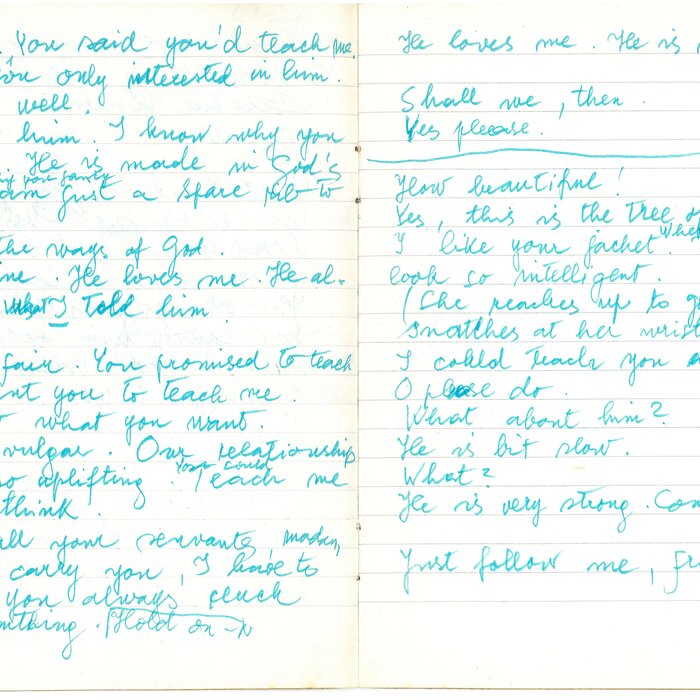 . You said you'd teach me,
You only interested in him.
well.
him. I know why you
He is made in God's
am just a spare rib to
the ways of God.
me. He loves me. He al-
what I told him
fair. You promised to teach
nt you to teach me.
what you want.
vulgar. Our relationship
so uplifting. You could Teach me
think.
all your servants, madam,
carry you, I have to
you always cluck
mthing. Hold on
He loves me. He is
Shall we, then.
Yes please.
How beautiful!
Yes, this is the Tree of
I like your jacket.
look so intelligent.
(She reaches up to
snatches at her wrist
I could teach you
O please do.
What about him?
He is bit slow.
What?
He is very strong. Com
Just follow me,